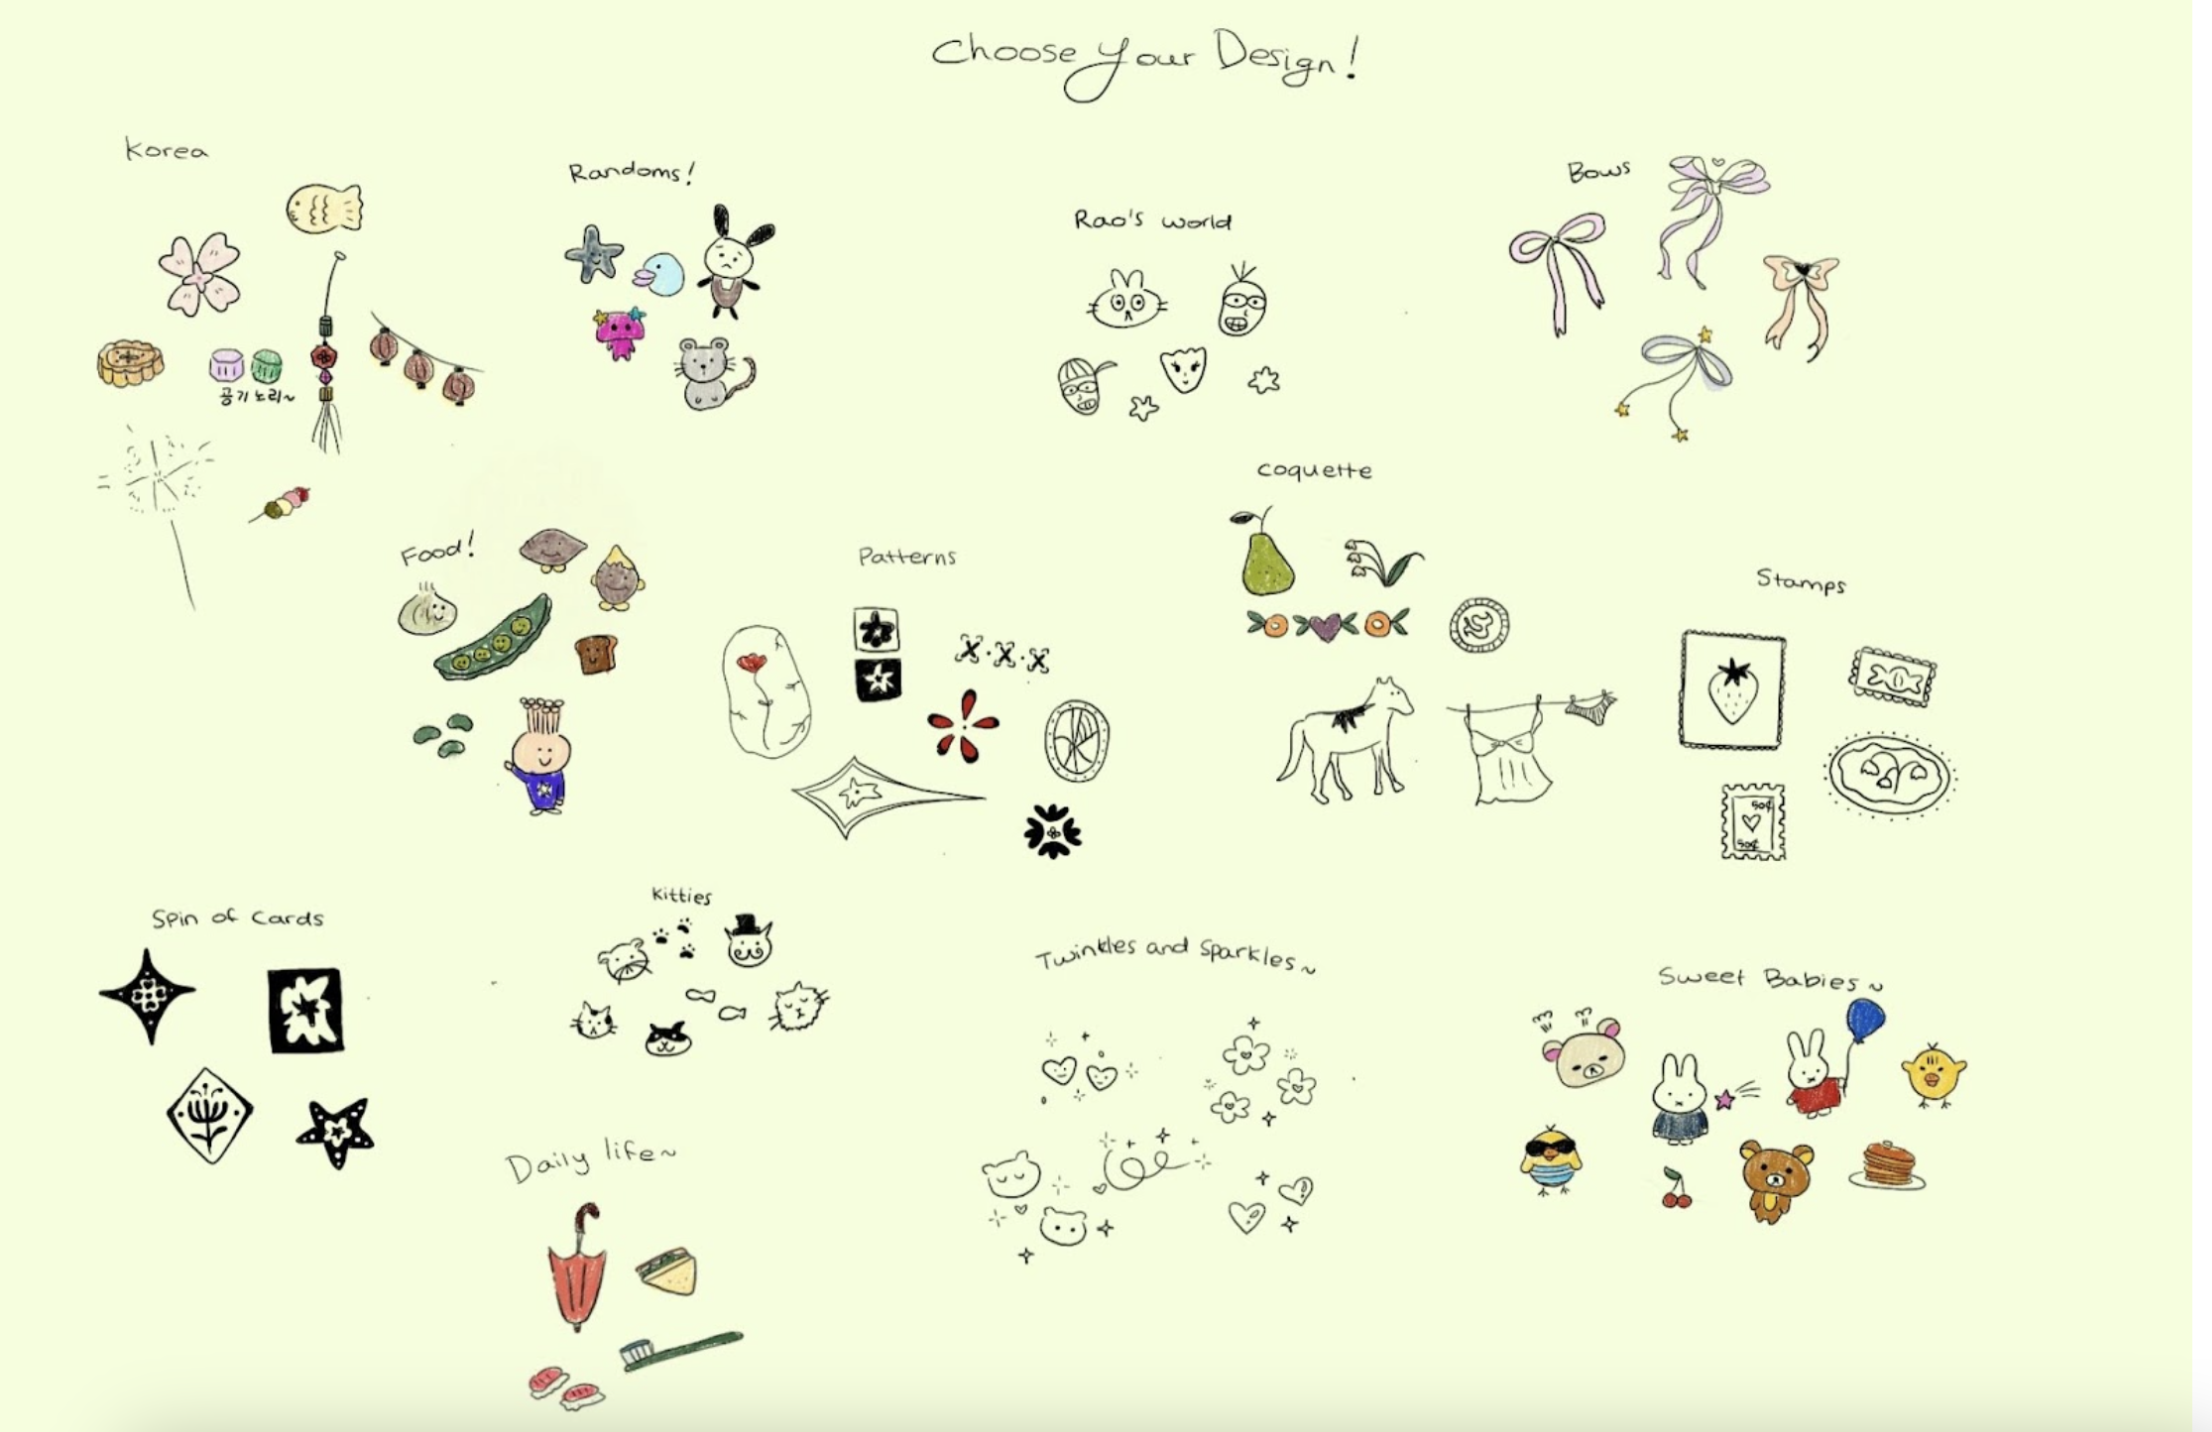 Choose Your Design!
Korea
공기 노리~
Randoms!
Rao's world
Bows
Food!
Patterns
X·X·X
coquette
Stamps
50¢
50¢
Spin of Cards
Kitties
Twinkles and Sparkles~
Sweet Babies~
Daily life~